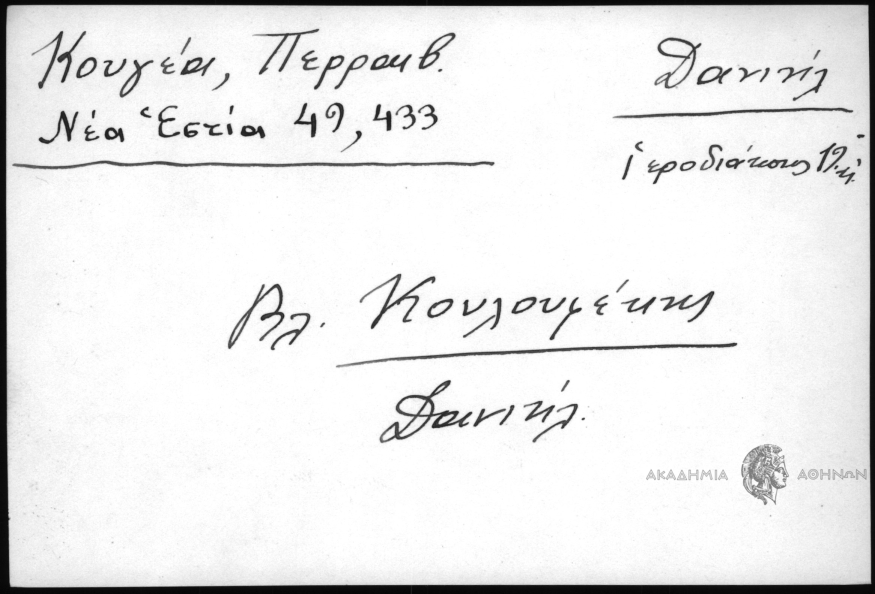 Κουγέα, Περραιβ.
Νέα Ἑστία 49, 433
Δανιήλ
ἱεροδιάκονος 19.
Βλ. Κουλουμέκης
Δανιήλ.
ΑΚΑΔΗΜΙΑ ΑΘΗΝΩΝ